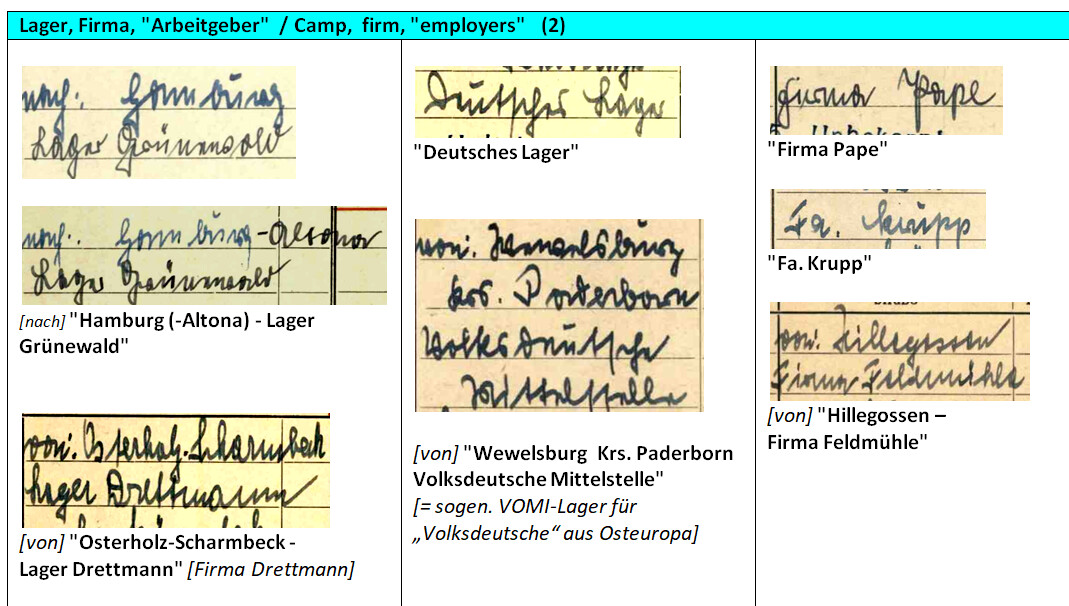 Lager, Firma, "Arbeitgeber" / Camp, firm, "employers" (2)
nach: Hamburg
Lager Grünewald
nach: Hamburg-Altona
Lager Grünewald
[nach] "Hamburg (-Altona) - Lager
Grünewald"
von: Osterholz-Scharmbeck
Lager Drettmann
[von] "Osterholz-Scharmbeck -
Lager Drettmann" [Firma Drettmann]
Deutsches Lager
"Deutsches Lager"
von: Wewelsburg
Krs. Paderborn
Volksdeutsche
Mittelstelle
[von] "Wewelsburg Krs. Paderborn
Volksdeutsche Mittelstelle"
[= sogen. VOMI-Lager für
„Volksdeutsche“ aus Osteuropa]
Firma Pape
"Firma Pape"
Fa. Krupp
"Fa. Krupp"
von: Hillegossen
Firma Feldmühle
[von] "Hillegossen –
Firma Feldmühle"